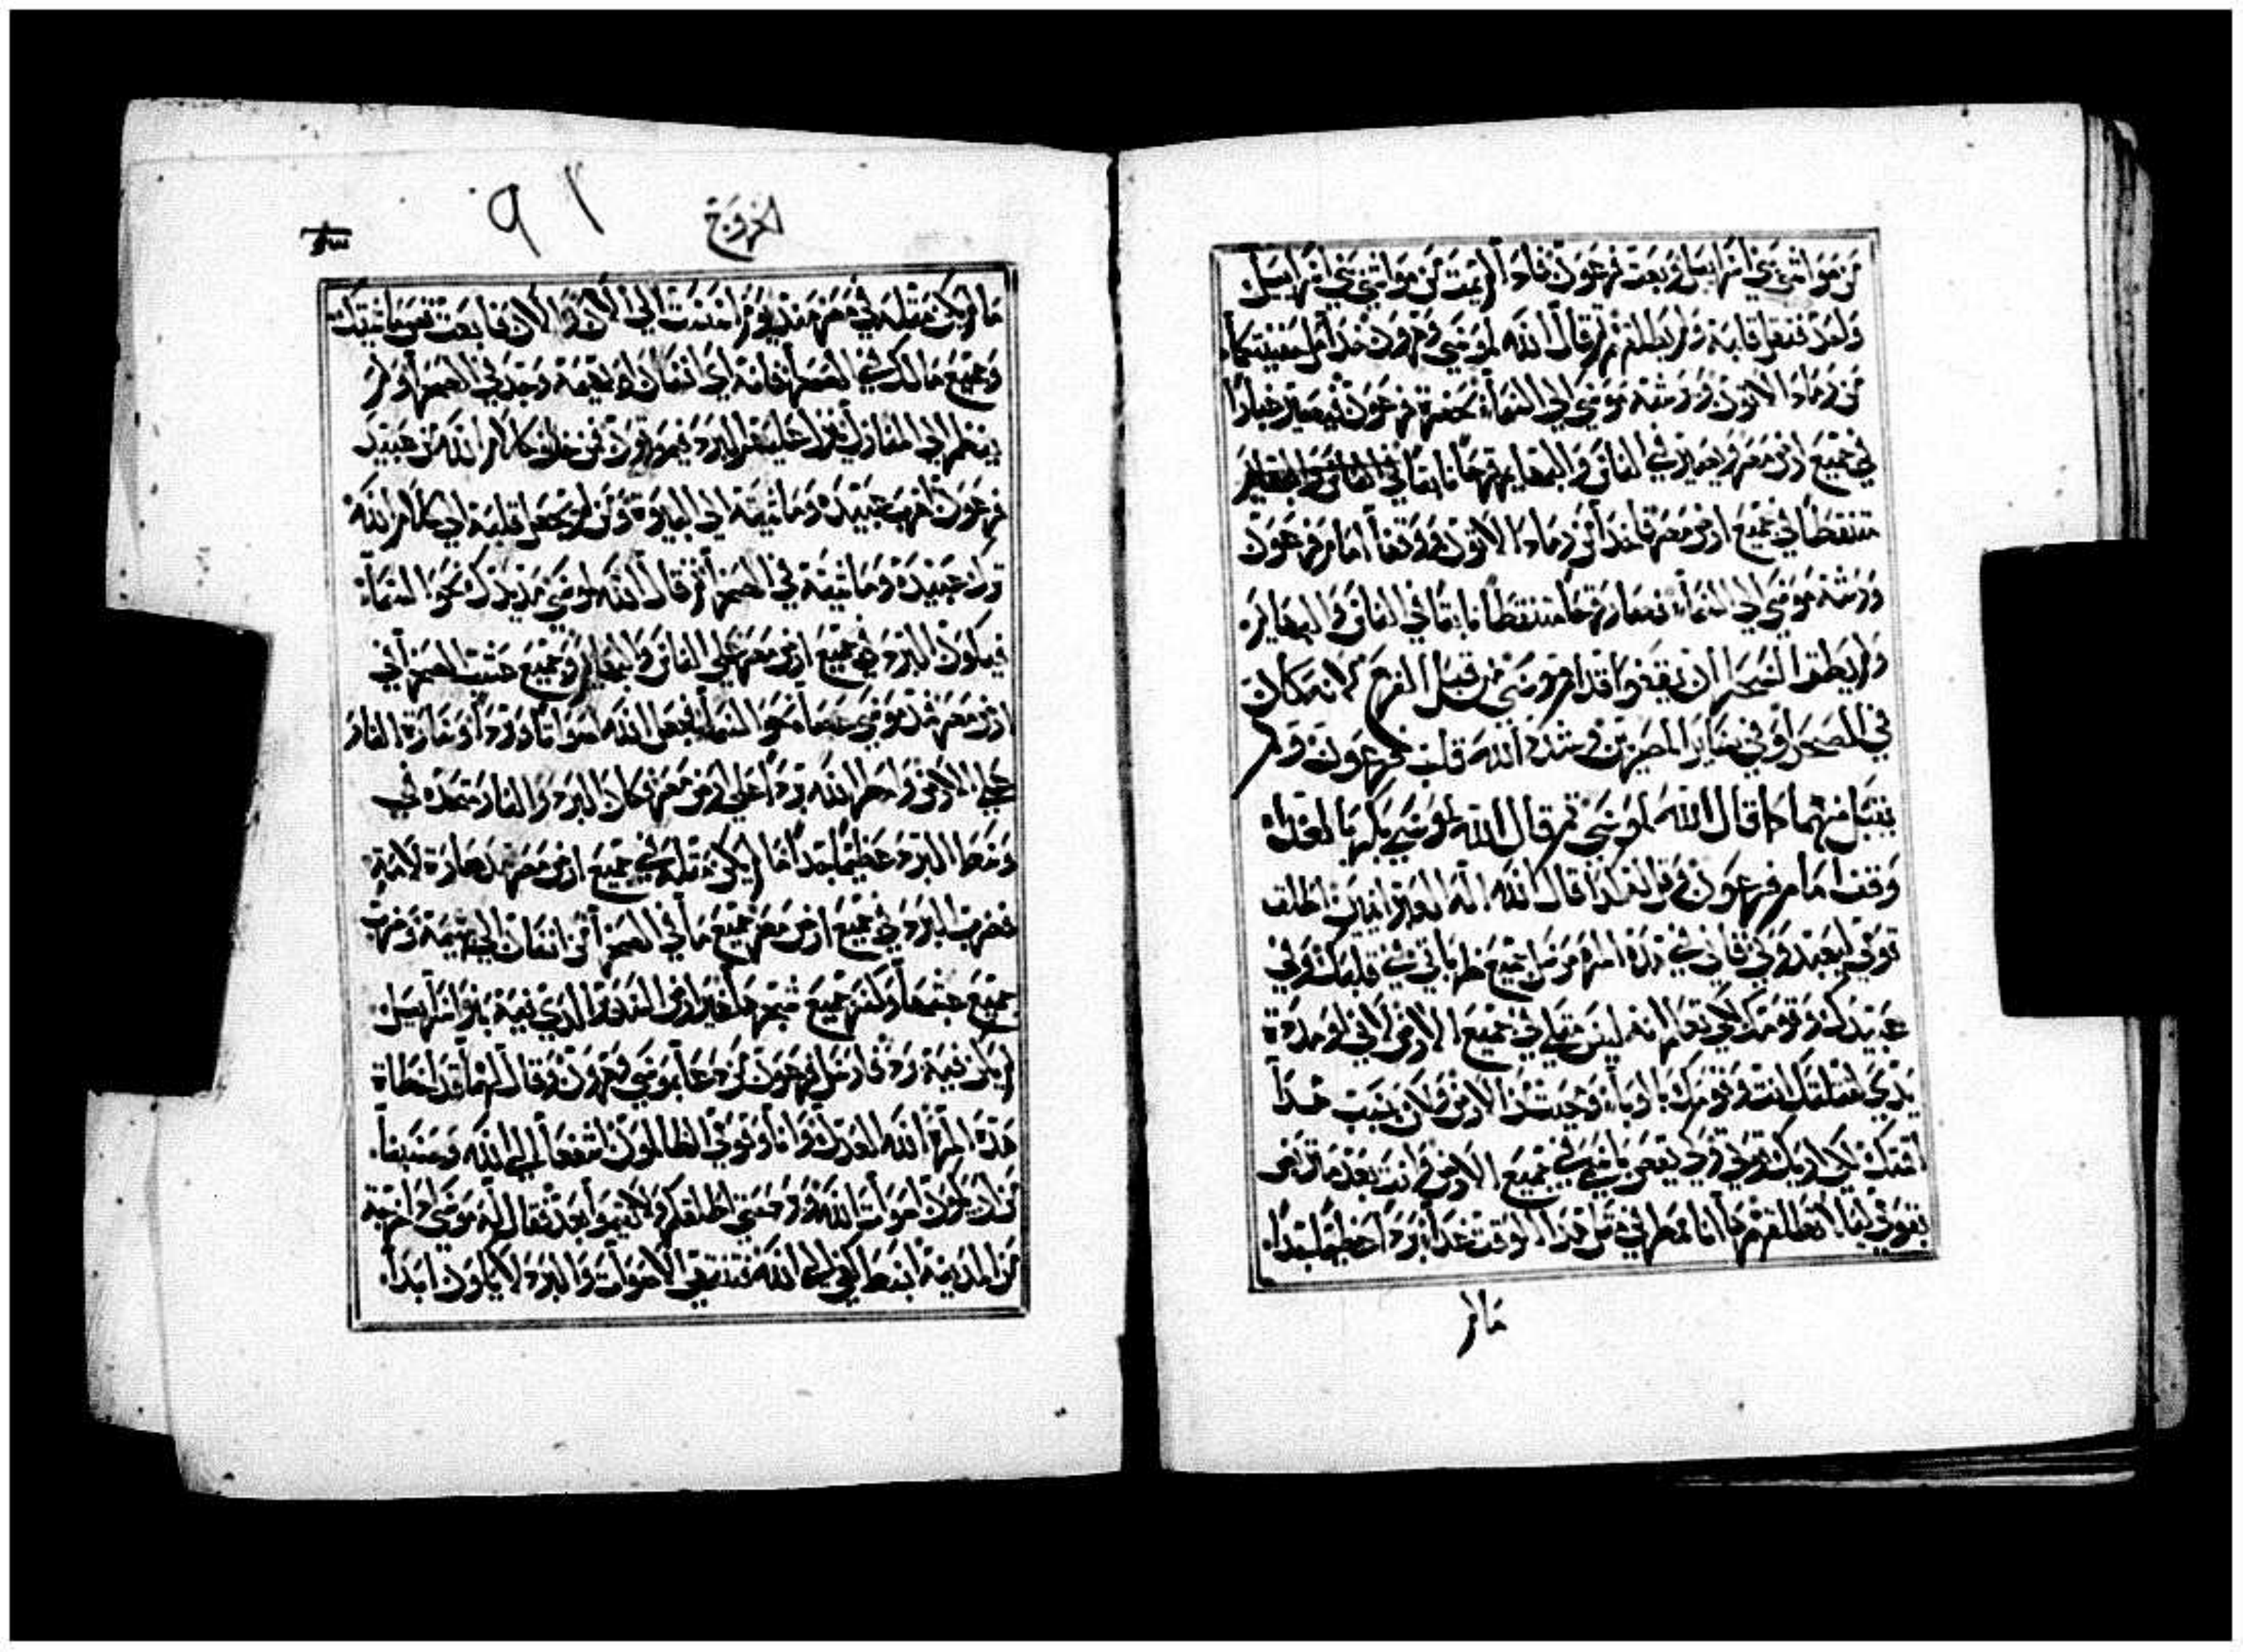 من مواشي بني اسراييل وبعث فرعون فاذا لم يمت من مواشي بني اسراييل
ولا احد فقسا قلبه ولم يطلقهم ثم قال الله لموسى وهرون خذا مل
من رماد الاتون ورشه موسى الى السماء بحضرة فرعون فيصير غبارا
في جميع ارض مصر ويصير في الناس والبهايم قرحا نابتا في الناس والبهايم
متنفطا في جميع ارض مصر فاخذا من رماد الاتون ووقفا امام فرعون
ورشه موسى الى السماء فصار قرحا متنفطا نابتا في الناس والبهايم
ولم يطق السحرا ان يقفوا قدام موسى من قبل القرح لانه كان
في السحرا وفي ساير المصريين وشدد الله قلب فرعون ولم
يقبل منهما كما قال الله لموسى ثم قال الله لموسى بكر بالغداه
وقف امام فرعون وقل له كذا قال الله اله العبرانيين اطلق
قومي ليعبدوني فاني في هذه المره مرسل جميع ضرباتي في قلبك وفي
عبيدك وقومك لكي تعلم انه ليس مثلي في جميع الارض لاني لو مددت
يدي لقتلتك انت وقومك بالوباء وفنيت من الارض ولكن بسبب هذا
اقمتك لكي اريك قوتي ولكي يقص باسمي في جميع الارض وانت بعد
بقومي ليلا تطلقهم ها انا ممطر في مثل هذا الوقت غدا بردا عظيما جدا
مالم
الخروج
٩١
مالم يكن مثله في مصر منذ يوم اسست الى الان والان فابعث ضم ماشيتك
وجميع مالك في الصحرا فانه اي انسان او بهيمة وجد في الصحرا ولم
ينضم الى المنازل ينزل عليهم البرد فيموتون فمن خاف كلام الله من عبيد
فرعون اهرب عبيده وماشيته الى البيوت ومن لم يجعل قلبه الى كلام الله
ترك عبيده وماشيته في الصحرا ثم قال الله لموسى مد يدك نحو السماء
فيكون البرد في جميع ارض مصر على الناس والبهايم وجميع عشب الصحرا في
ارض مصر فمد موسى عصاه نحو السماء فجعل الله اصواتا وبردا وسارت النار
على الارض وامطر الله بردا على ارض مصر فكان البرد والنار متقده في
وسط البرد عظيما جدا ما لم يكن مثله في جميع ارض مصر مذ صارت لامة
فضرب البرد في جميع ارض مصر جميع ما في الصحرا من انسان الى بهيمة وضرب
جميع عشبها وكسر جميع شجرها غير ارض السدير الذي فيه بنو اسراييل
لم يكن فيه برد فارسل فرعون من دعا بموسى وهرون وقال لهما قد اخطات
هذه المره الله العدل وانا وقومي الظالمون اشفعا لي الى الله وحسبنا
من ان يكون اصوات الله وبرد حتى اطلقكم ولا تقيموا بعد فقال له موسى اذا خرجت
من المدينة ابسط كفي الى الله فتنتهي الاصوات والبرد لا يكون ابدا